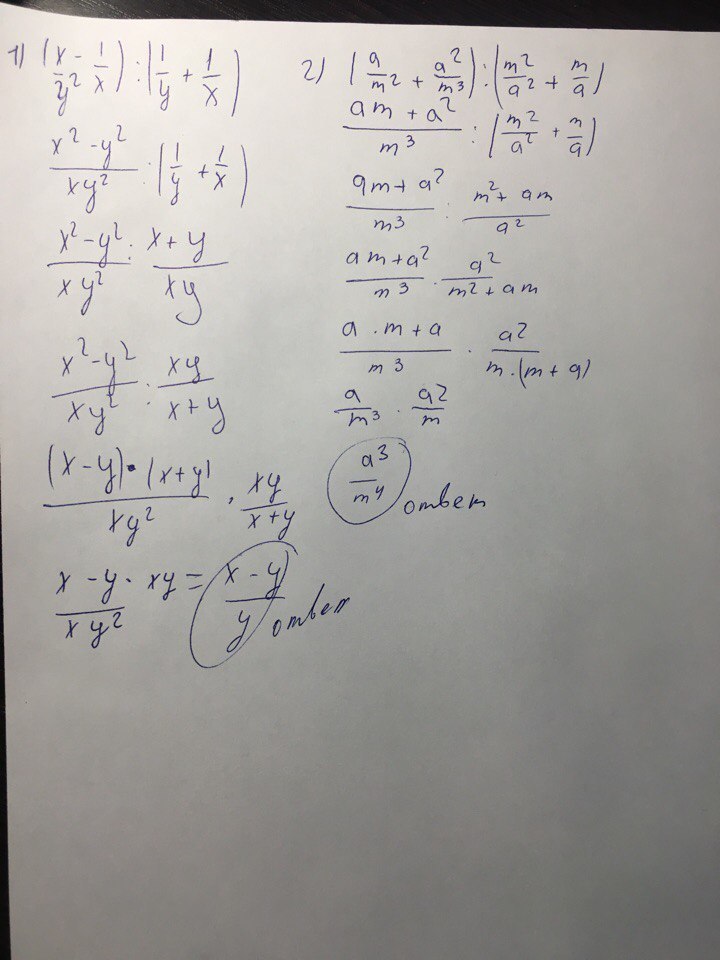 1) (x/y² - 1/x) : (1/y + 1/x)
x² - y² / xy² : (1/y + 1/x)
x² - y² / xy² : x + y / xy
x² - y² / xy² : xy / x + y
(x - y) · (x + y) / xy² · xy / x + y
x - y / xy² · xy = x - y / y ответ
2) (a/m² + a²/m³) : (m²/a² + m/a)
am + a² / m³ : (m²/a² + m/a)
am + a² / m³ : m² + am / a²
am + a² / m³ · a² / m² + am
a · m + a / m³ · a² / m · (m + a)
a / m³ · a² / m
a³ / m⁴ ответ